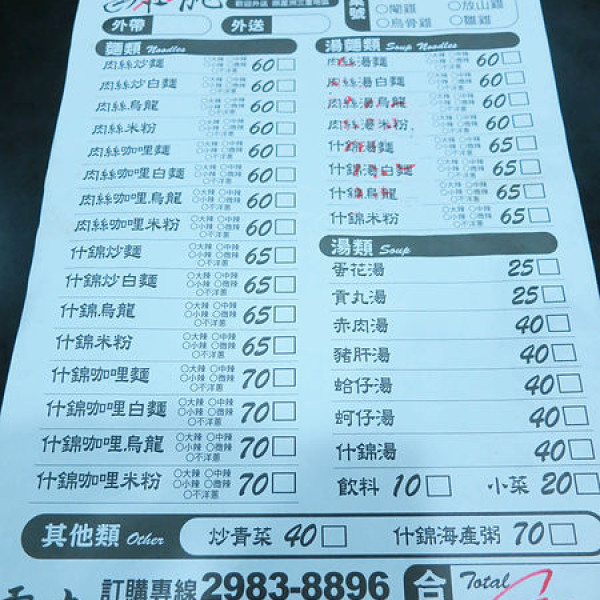 外帶 外送
○閹雞 ○放山雞
○烏骨雞 ○雛雞
麵類 Noodles
肉絲炒麵 ○大辣 ○中辣 ○小辣 ○微辣 ○不洋蔥 60
肉絲炒白麵 ○大辣 ○中辣 ○小辣 ○微辣 ○不洋蔥 60
肉絲烏龍 ○大辣 ○中辣 ○小辣 ○微辣 ○不洋蔥 60
肉絲米粉 ○大辣 ○中辣 ○小辣 ○微辣 ○不洋蔥 60
肉絲咖哩麵 ○大辣 ○中辣 ○小辣 ○微辣 ○不洋蔥 60
肉絲咖哩白麵 ○大辣 ○中辣 ○小辣 ○微辣 ○不洋蔥 60
肉絲咖哩烏龍 ○大辣 ○中辣 ○小辣 ○微辣 ○不洋蔥 60
肉絲咖哩米粉 ○大辣 ○中辣 ○小辣 ○微辣 ○不洋蔥 60
什錦炒麵 ○大辣 ○中辣 ○小辣 ○微辣 ○不洋蔥 65
什錦炒白麵 ○大辣 ○中辣 ○小辣 ○微辣 ○不洋蔥 65
什錦烏龍 ○大辣 ○中辣 ○小辣 ○微辣 ○不洋蔥 65
什錦米粉 ○大辣 ○中辣 ○小辣 ○微辣 ○不洋蔥 65
什錦咖哩麵 ○大辣 ○中辣 ○小辣 ○微辣 ○不洋蔥 70
什錦咖哩白麵 ○大辣 ○中辣 ○小辣 ○微辣 ○不洋蔥 70
什錦咖哩烏龍 ○大辣 ○中辣 ○小辣 ○微辣 ○不洋蔥 70
什錦咖哩米粉 ○大辣 ○中辣 ○小辣 ○微辣 ○不洋蔥 70
湯麵類 Soup Noodles
肉絲湯麵 ○大辣 ○中辣 ○小辣 ○微辣 ○不洋蔥 60
肉絲湯白麵 ○大辣 ○中辣 ○小辣 ○微辣 ○不洋蔥 60
肉絲湯烏龍 ○大辣 ○中辣 ○小辣 ○微辣 ○不洋蔥 60
肉絲湯米粉 ○大辣 ○中辣 ○小辣 ○微辣 ○不洋蔥 60
什錦湯麵 ○大辣 ○中辣 ○小辣 ○微辣 ○不洋蔥 65
什錦湯白麵 ○大辣 ○中辣 ○小辣 ○微辣 ○不洋蔥 65
什錦烏龍 ○大辣 ○中辣 ○小辣 ○微辣 ○不洋蔥 65
什錦米粉 ○大辣 ○中辣 ○小辣 ○微辣 ○不洋蔥 65
湯類 Soup
蛋花湯 25
貢丸湯 25
赤肉湯 40
豬肝湯 40
蛤仔湯 40
蚵仔湯 40
什錦湯 40
飲料 10 小菜 20
其他類 Other 炒青菜 40 什錦海產粥 70
訂購專線 2983-8896 合 Total